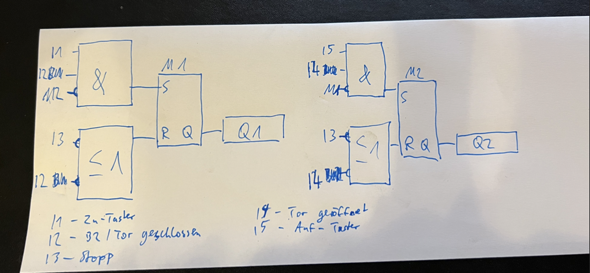 I1
I2
M2
&
M1
S
I3
I2
≤1
R Q
Q1
I5
I4
M1
&
M2
S
I3
I4
≤1
R Q
Q2
I1 - Zu-Taster
I2 - B2 / Tor geschlossen
I3 - Stopp
I4 - Tor geöffnet
I5 - Auf-Taster